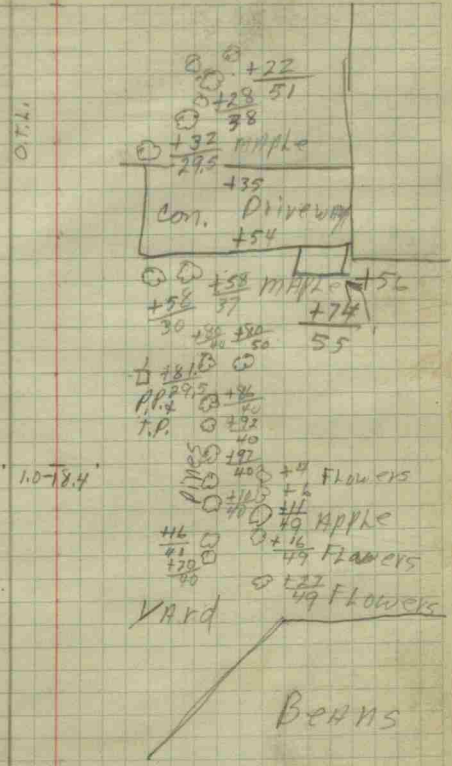 O.T.L.
+22
51
+28
38
+32 MAPLe
29.5
+35
Con. Driveway
+54
+58 MAPLe +56
37
+58
30
+74
55
+80 +80
40 50
+81
29.5
P.P. &
T.P.
+86
40
+92
40
+97
40
Pines
1.0-18.4
+4 Flowers
+6
+10
40
+11 APPLe
49
+16
41
+16 Flowers
49
+20
40
+22 FLowers
49
YArd
BeANs